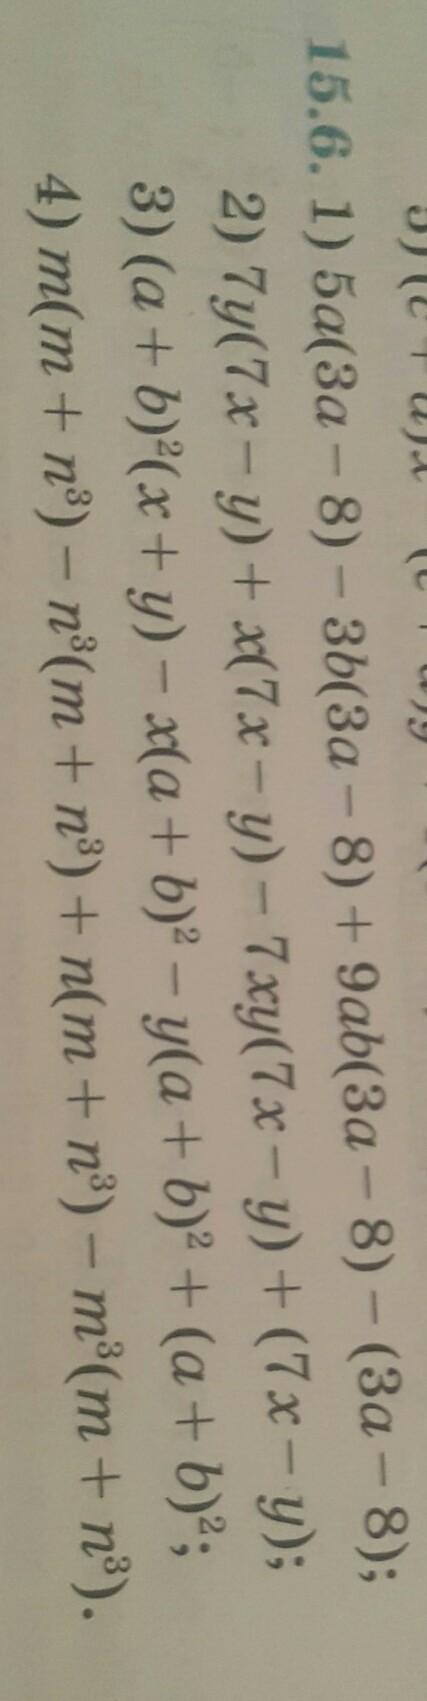 15.6. 1) 5a(3a − 8) − 3b(3a − 8) + 9ab(3a − 8) − (3a − 8);
2) 7y(7x − y) + x(7x − y) − 7xy(7x − y) + (7x − y);
3) (a + b)²(x + y) − x(a + b)² − y(a + b)² + (a + b)²;
4) m(m + n³) − n³(m + n³) + n(m + n³) − m³(m + n³).